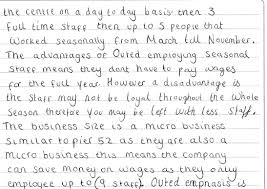 the centre on a day to day basis then 3
full time staff then up to 5 people that
worked seasonally from March till November.
The advantages or Outed employing seasonal
staff means they dont have to pay wages
for the full year. However a disadvantage is
the staff may not be loyal throughout the whole
season therefore you may be left with less staff.
The business size is a micro business
similar to pier 52 as they are also a
micro business this means the company
can save money on wages as they only
employee up to (9 staff). Outed emphasis is